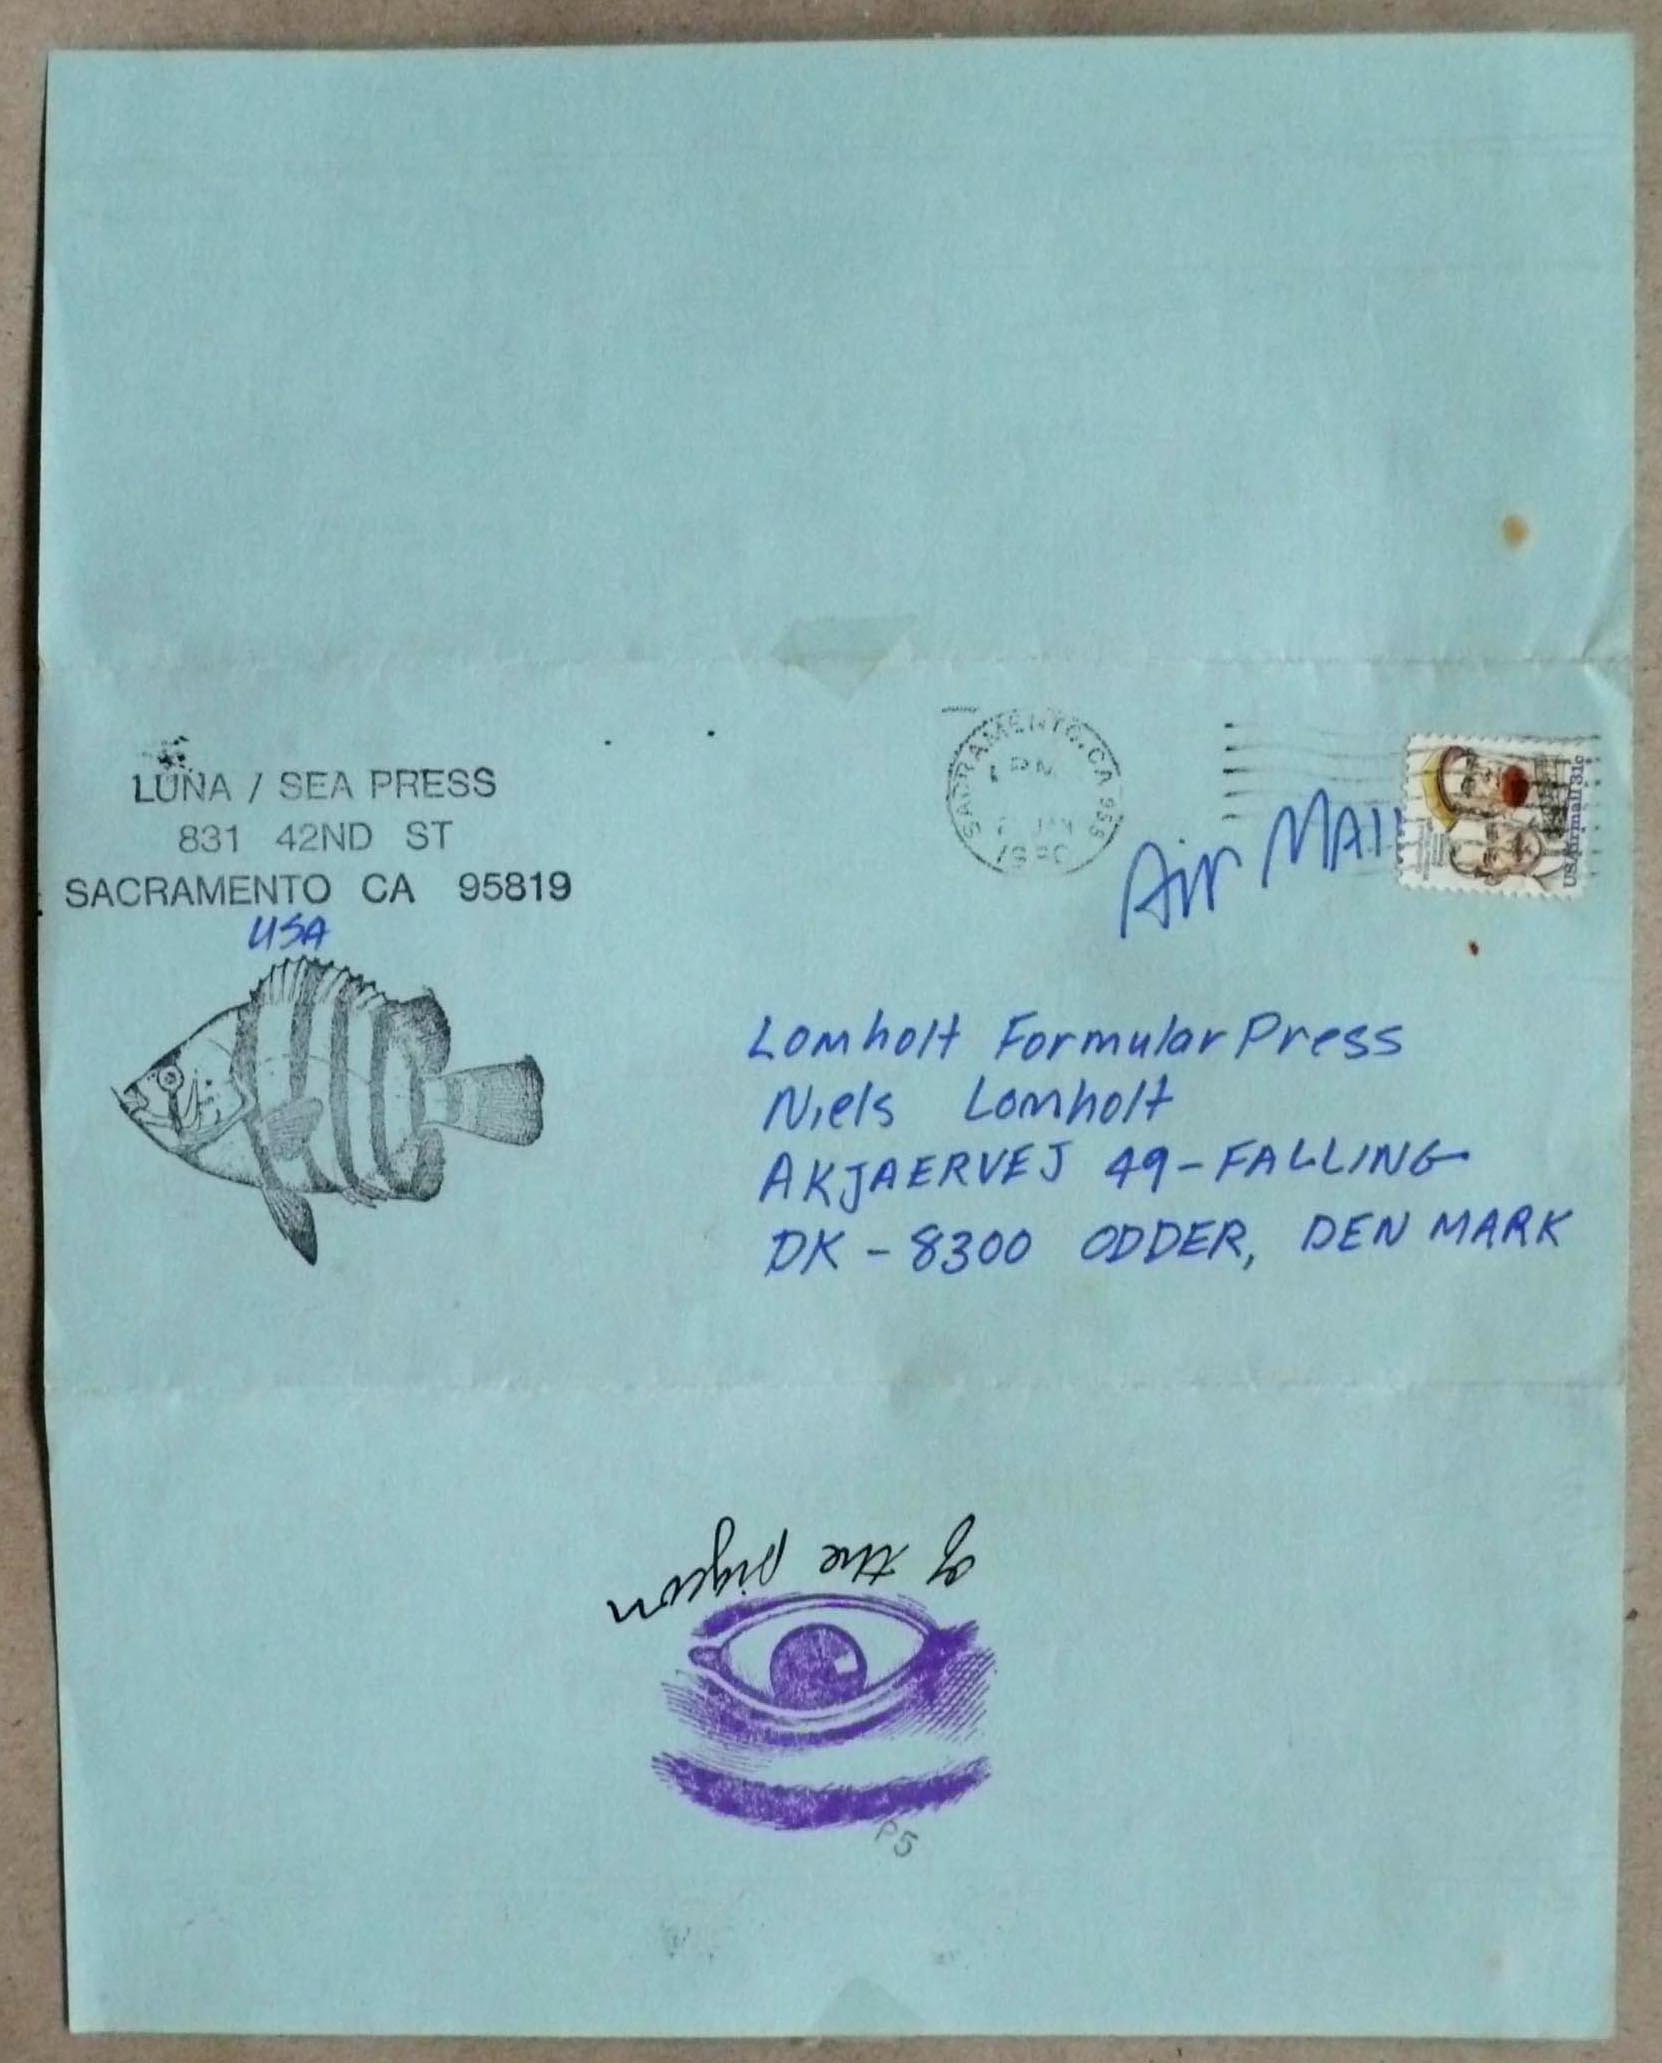 LUNA / SEA PRESS
831 42ND ST
SACRAMENTO CA 95819
USA
SACRAMENTO, CA 958
PM
1980
Air MAIL
USAirmail 31c
Lomholt Formular Press
Niels Lomholt
AKJAERVEJ 49-FALLING
DK-8300 ODDER, DENMARK
of the pigeon
P5